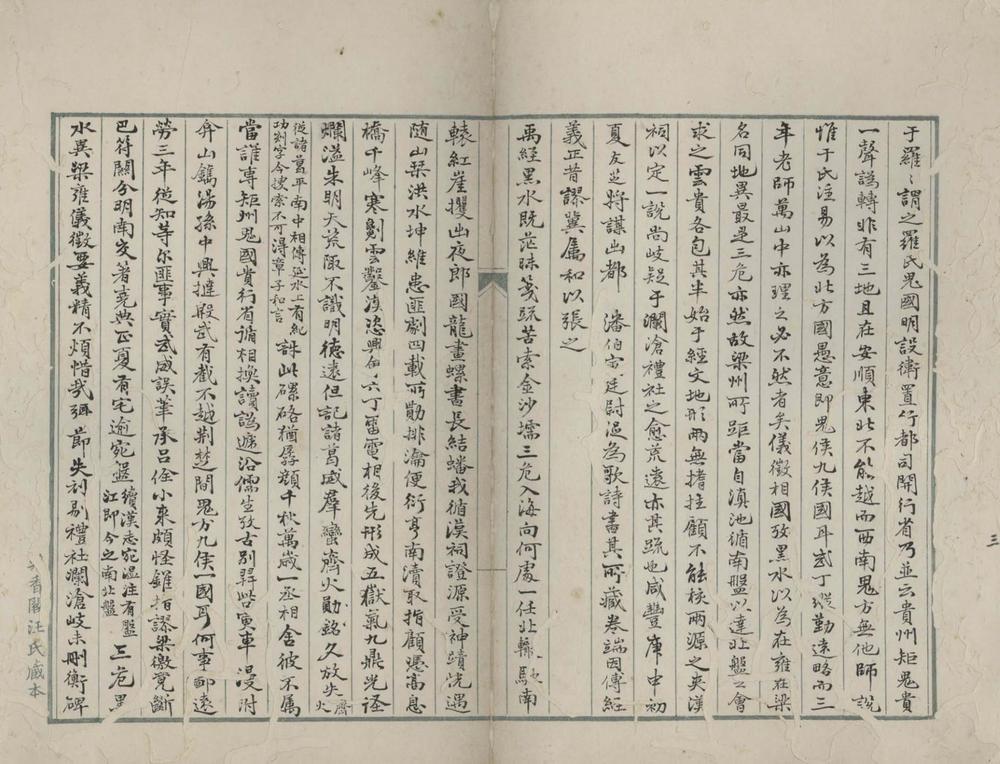 于羅〻謂之羅氏鬼國明設衛置行都司開行省乃並云貴州矩鬼貴
一聲譌轉非有三地且在安順東北不能越而西南鬼方無他師說
惟于氏注易以為北方國愚意即鬼侯九侯國耳武丁雖勤遠略而三
年老師萬山中亦理之必不然者矣儀徵相國攷黑水以為在雍在梁
名同地異最是三危亦然故梁州所距當自滇池循南盤以達北盤之會
求之雲貴各包其半始于經文地形兩無撐拄顧不能核兩源之夾漢
祠以定一說尚歧疑于瀾滄禮社之愈荒遠亦其疏也咸豐庚申初
夏友芝將謀出都 潘伯寅廷尉過為歌詩書其所藏卷端因傅紅
義正昔謬冀屬和以張之
禹經黑水既茫昧箋疏苦索金沙壖三危入海向何處一任北轅駛南
轅紅崖攫出夜郎國龍畫螺書長結蟠我循漢祠證源受神蹟恍遇
隨山栞洪水坤維患匪劇四載所勩排瀹便衍亭南瀆取指顧慿高息
橋千峰寒劖雲鑿滇恣興作六丁雷電相後先形成五嶽氣九鼎光怪
爛溢朱明天荒陬不識明德遠但記諸葛威羣蠻濟火勛銘久放失濟火
從諸葛平南中相傳延水上有紀
功刻字今搜索不可得章子和言 誅此磥硌猶孱顏千秋萬歲一丞相舍彼不属
當誰專矩州鬼國貴行省循相換讀譌遞沿儒生攷古別羿啓寅車漫附
弇山鐫湯孫中興撻殷武有截不越荆楚間鬼方九侯一國耳何事鄙遠
勞三年從知等尔匪事實武成誤筆承呂佺小東頗怪錐指謬梁徼寬斷
巴符關分明南交著堯典正夏有宅逾宛盤 續漢志宛溫注有盤
江即今之南北盤 三危黑
水異梁雍儀徵要義精不煩惜哉弭節失刻剔禮社瀾滄歧未刪衡碑
三
香閣汪氏藏本